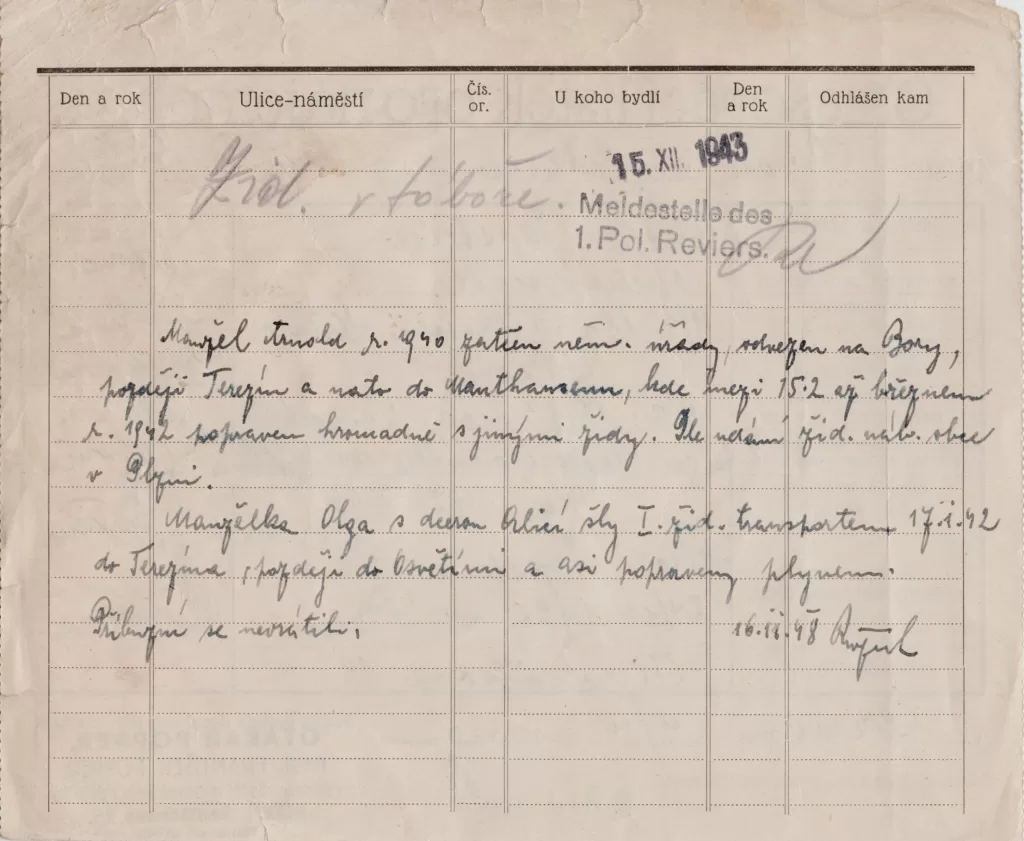 Den a rok Ulice-náměstí Čís. or. U koho bydlí Den a rok Odhlášen kam
Žid. v táboře.
15. XII. 1943
Meldestelle des
1. Pol. Reviers.
Manžel Arnold r. 1940 zatčen něm. úřady, odvezen na Bory,
později Terezín a nato do Mauthausenu, kde mezi 15.2 až březnem
r. 1942 popraven hromadně s jinými židy. Dle udání žid. náb. obce
v Plzni.
Manželka Olga s dcerou Alicí šly I. žid. transportem 17.1.42
do Terezína, později do Osvětimi a asi popraveny plynem.
Příbuzní se nevrátili.
16.II.48